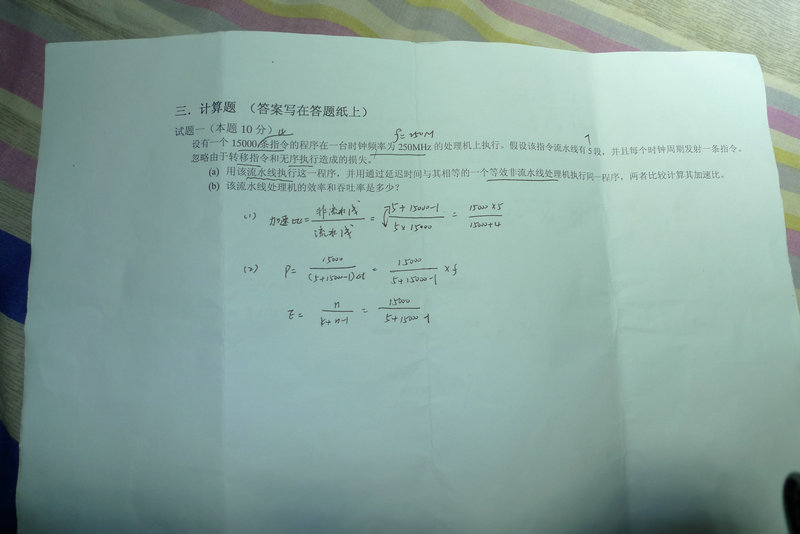 三．计算题 （答案写在答题纸上）
试题一（本题 10 分）
f=250M
没有一个 15000 条指令的程序在一台时钟频率为 250MHz 的处理机上执行。假设该指令流水线有 5 段，并且每个时钟周期发射一条指令。
忽略由于转移指令和无序执行造成的损失。
(a) 用该流水线执行这一程序，并用通过延迟时间与其相等的一个等效非流水线处理机执行同一程序，两者比较计算其加速比。
(b) 该流水线处理机的效率和吞吐率是多少？
(1) 加速比 = 非流水线 / 流水线 = 5+15000-1 / 5×15000 = 15000×5 / 15000+4
(2) P = 15000 / (5+15000-1)Δt = 15000 / 5+15000-1 ×f
E = n / k+n-1 = 15000 / 5+15000-1